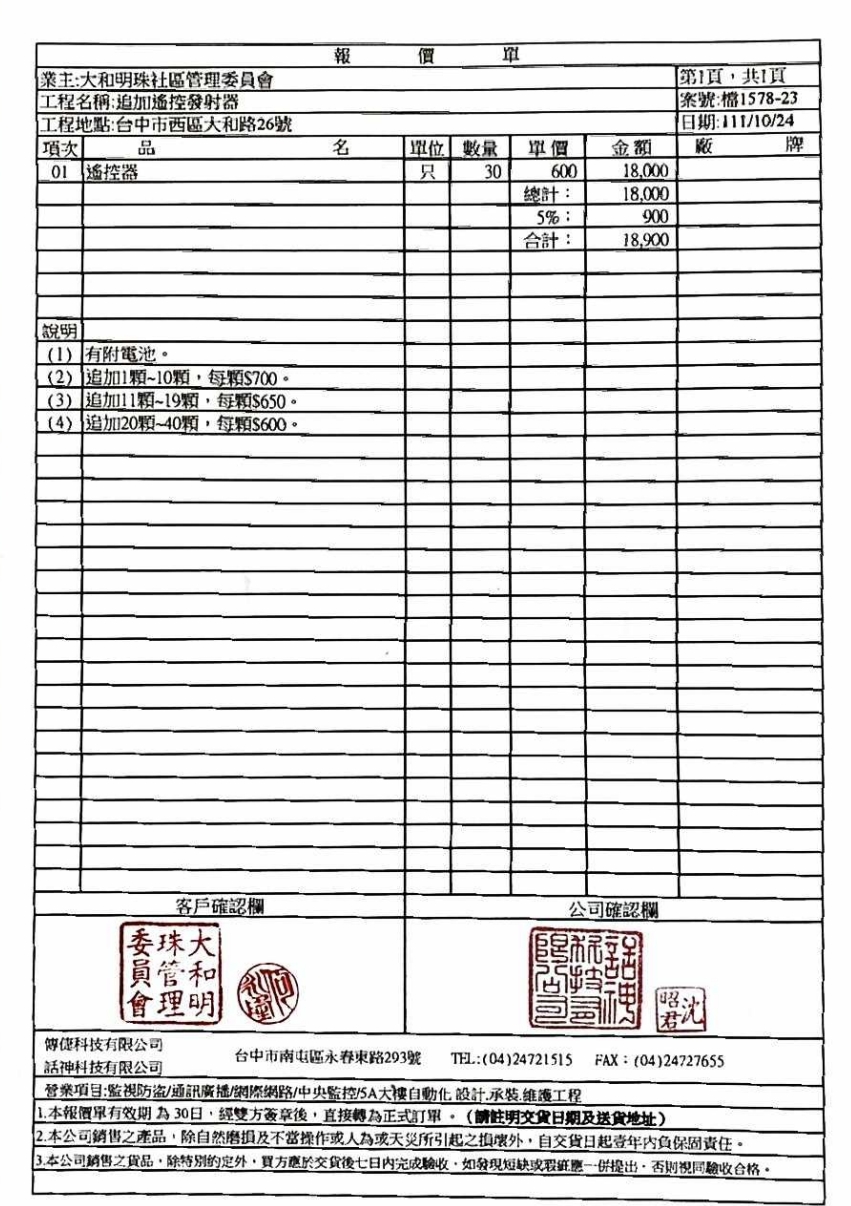 報 價 單
業主:大和明珠社區管理委員會 第1頁,共1頁
工程名稱:追加遙控發射器 案號:檔1578-23
工程地點:台中市西區大和路26號 日期:111/10/24
項次 品 名 單位 數量 單價 金額 廠 牌
01 遙控器 只 30 600 18,000
總計: 18,000
5%: 900
合計: 18,900
說明
(1) 有附電池。
(2) 追加1顆~10顆,每顆$700。
(3) 追加11顆~19顆,每顆$650。
(4) 追加20顆~40顆,每顆$600。
客戶確認欄 公司確認欄
大和明
珠管理
委員會
話神
科技有
限公司
沈
昭君
傳偼科技有限公司
話神科技有限公司
台中市南屯區永春東路293號 TEL:(04)24721515 FAX:(04)24727655
營業項目:監視防盜/通訊廣播/網際網路/中央監控/5A大樓自動化 設計.承裝.維護工程
1.本報價單有效期 為 30日,經雙方簽章後,直接轉為正式訂單 。(請註明交貨日期及送貨地址)
2.本公司銷售之產品,除自然磨損及不當操作或人為或天災所引起之損壞外,自交貨日起壹年內負保固責任。
3.本公司銷售之貨品,除特別約定外,買方應於交貨後七日內完成驗收,如發現短缺或瑕疵應一併提出,否則視同驗收合格。